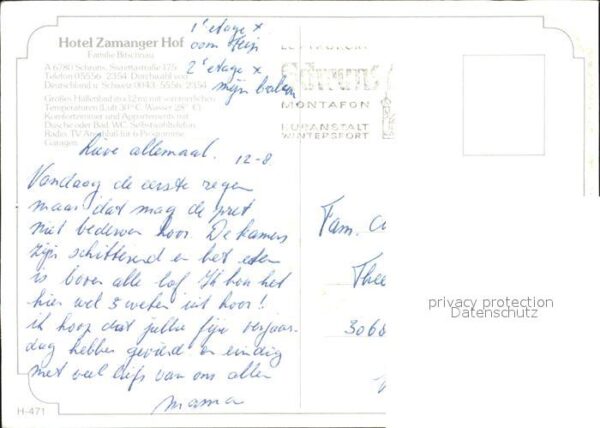 Hotel Zamanger Hof
Familie Bitschnau
A 6780 Schruns, Silvrettastraße 175
Telefon 05556 2354 Durchwahl von
Deutschland u. Schweiz 0043-5556-2354
Großes Hallenbad 6x12 m mit sommerlichen
Temperaturen (Luft 30° C, Wasser 28° C)
Komfortzimmer und Appartements mit
Dusche oder Bad, WC, Selbstwahltelefon,
Radio, TV Anschluß für 6 Programme
Garagen.
1e etage x
oom Hein
2e etage x
mijn balkon
LUFTKURORT
Schruns
MONTAFON
KURANSTALT
WINTERSPORT
Lieve allemaal. 12-8
Vandaag de eerste regen
maar dat mag de pret
niet bederven hoor. De kamers
zijn schitterend en het eten
is boven alle lof. Ik hou het
hier wel 3 weken uit hoor!
ik hoop dat jullie fijn verjaar-
dag hebben gevierd en eindig
met veel liefs van ons allen
mama
Fam.
Thee
3068
privacy protection
Datenschutz
H-471